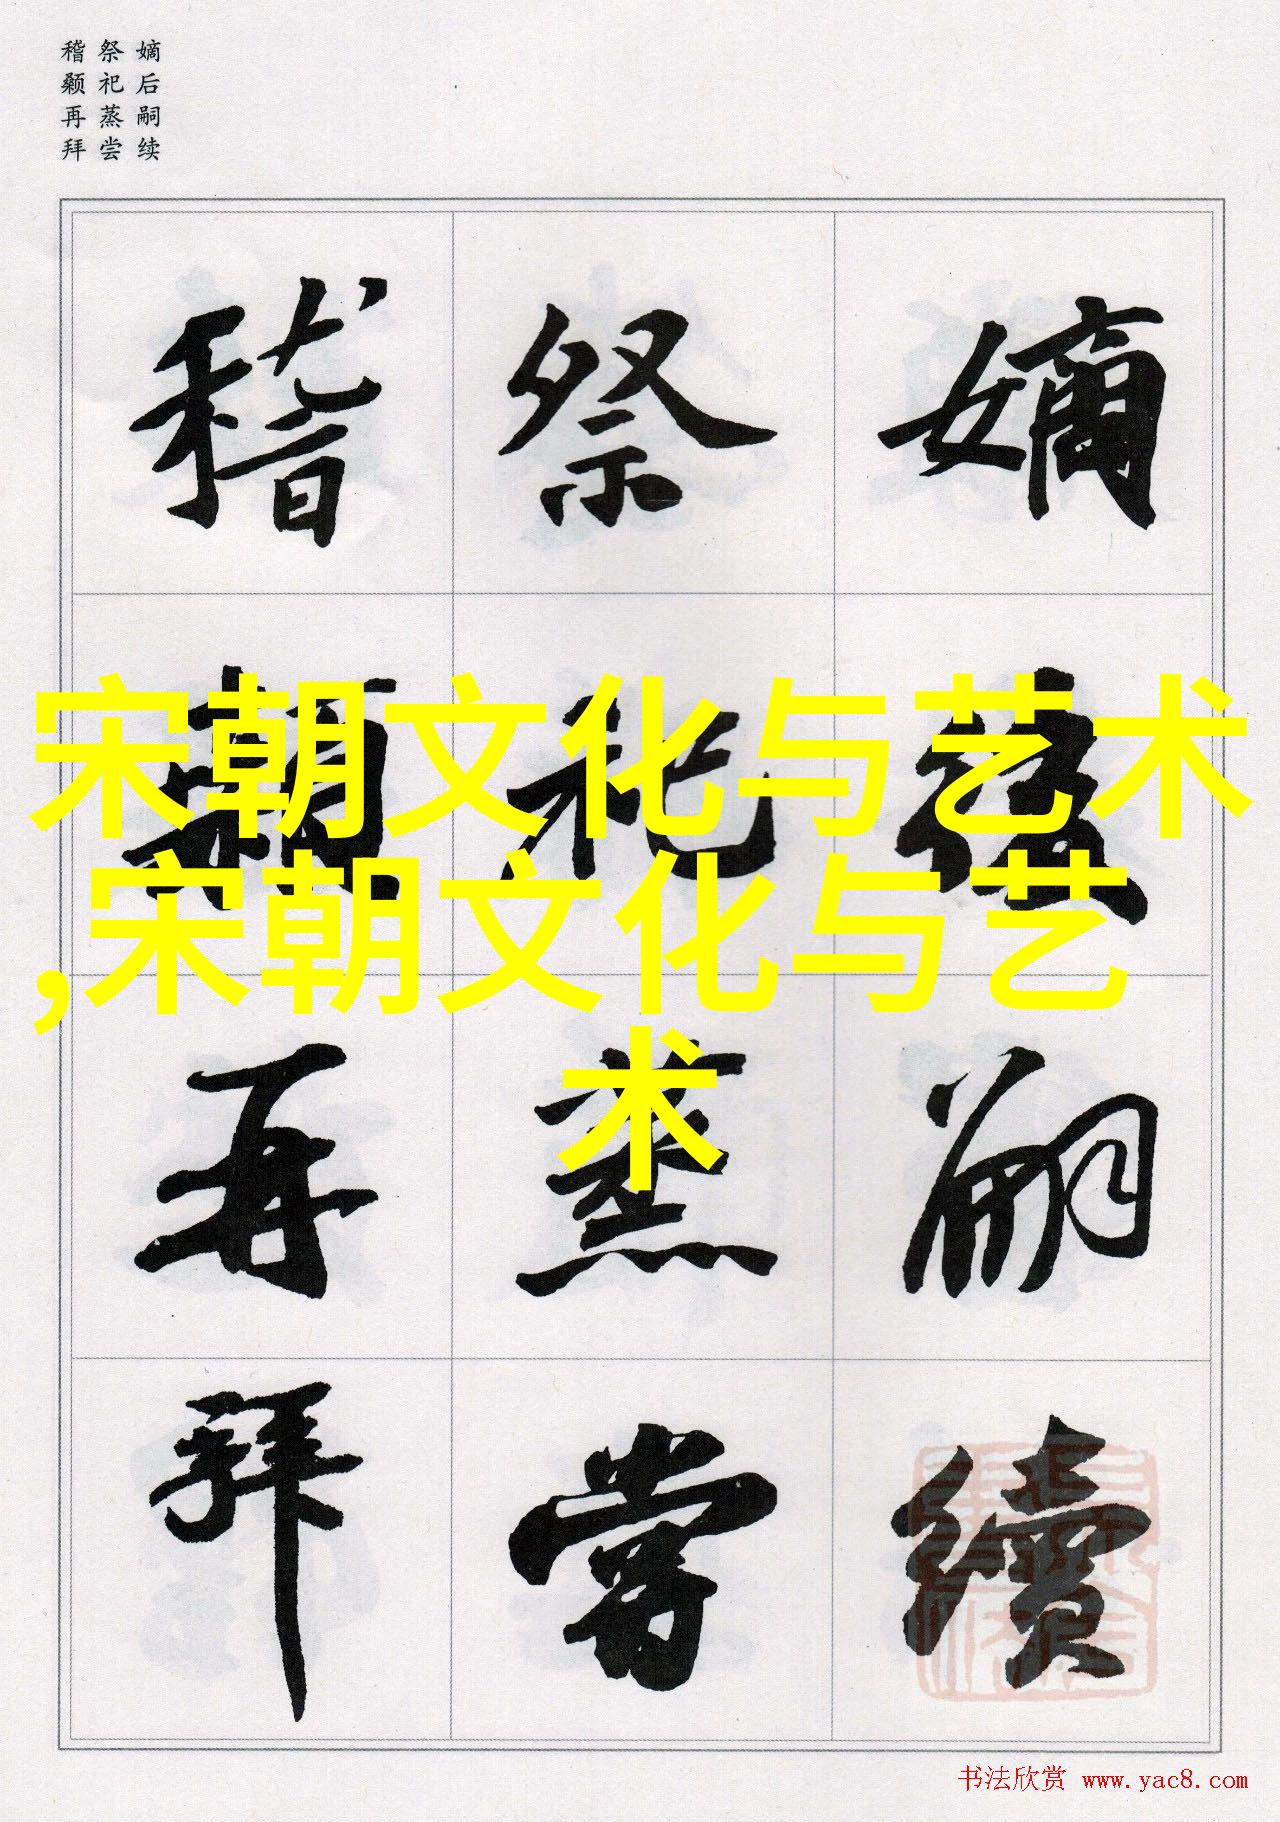 嫡后嗣续
祭祀蒸尝
稽颡再拜
嫡後嗣續
祭祀蒸嘗
稽顙再拜
宋朝文化与艺术
,宋朝文化与艺
术
书法欣赏 www.yac8.com